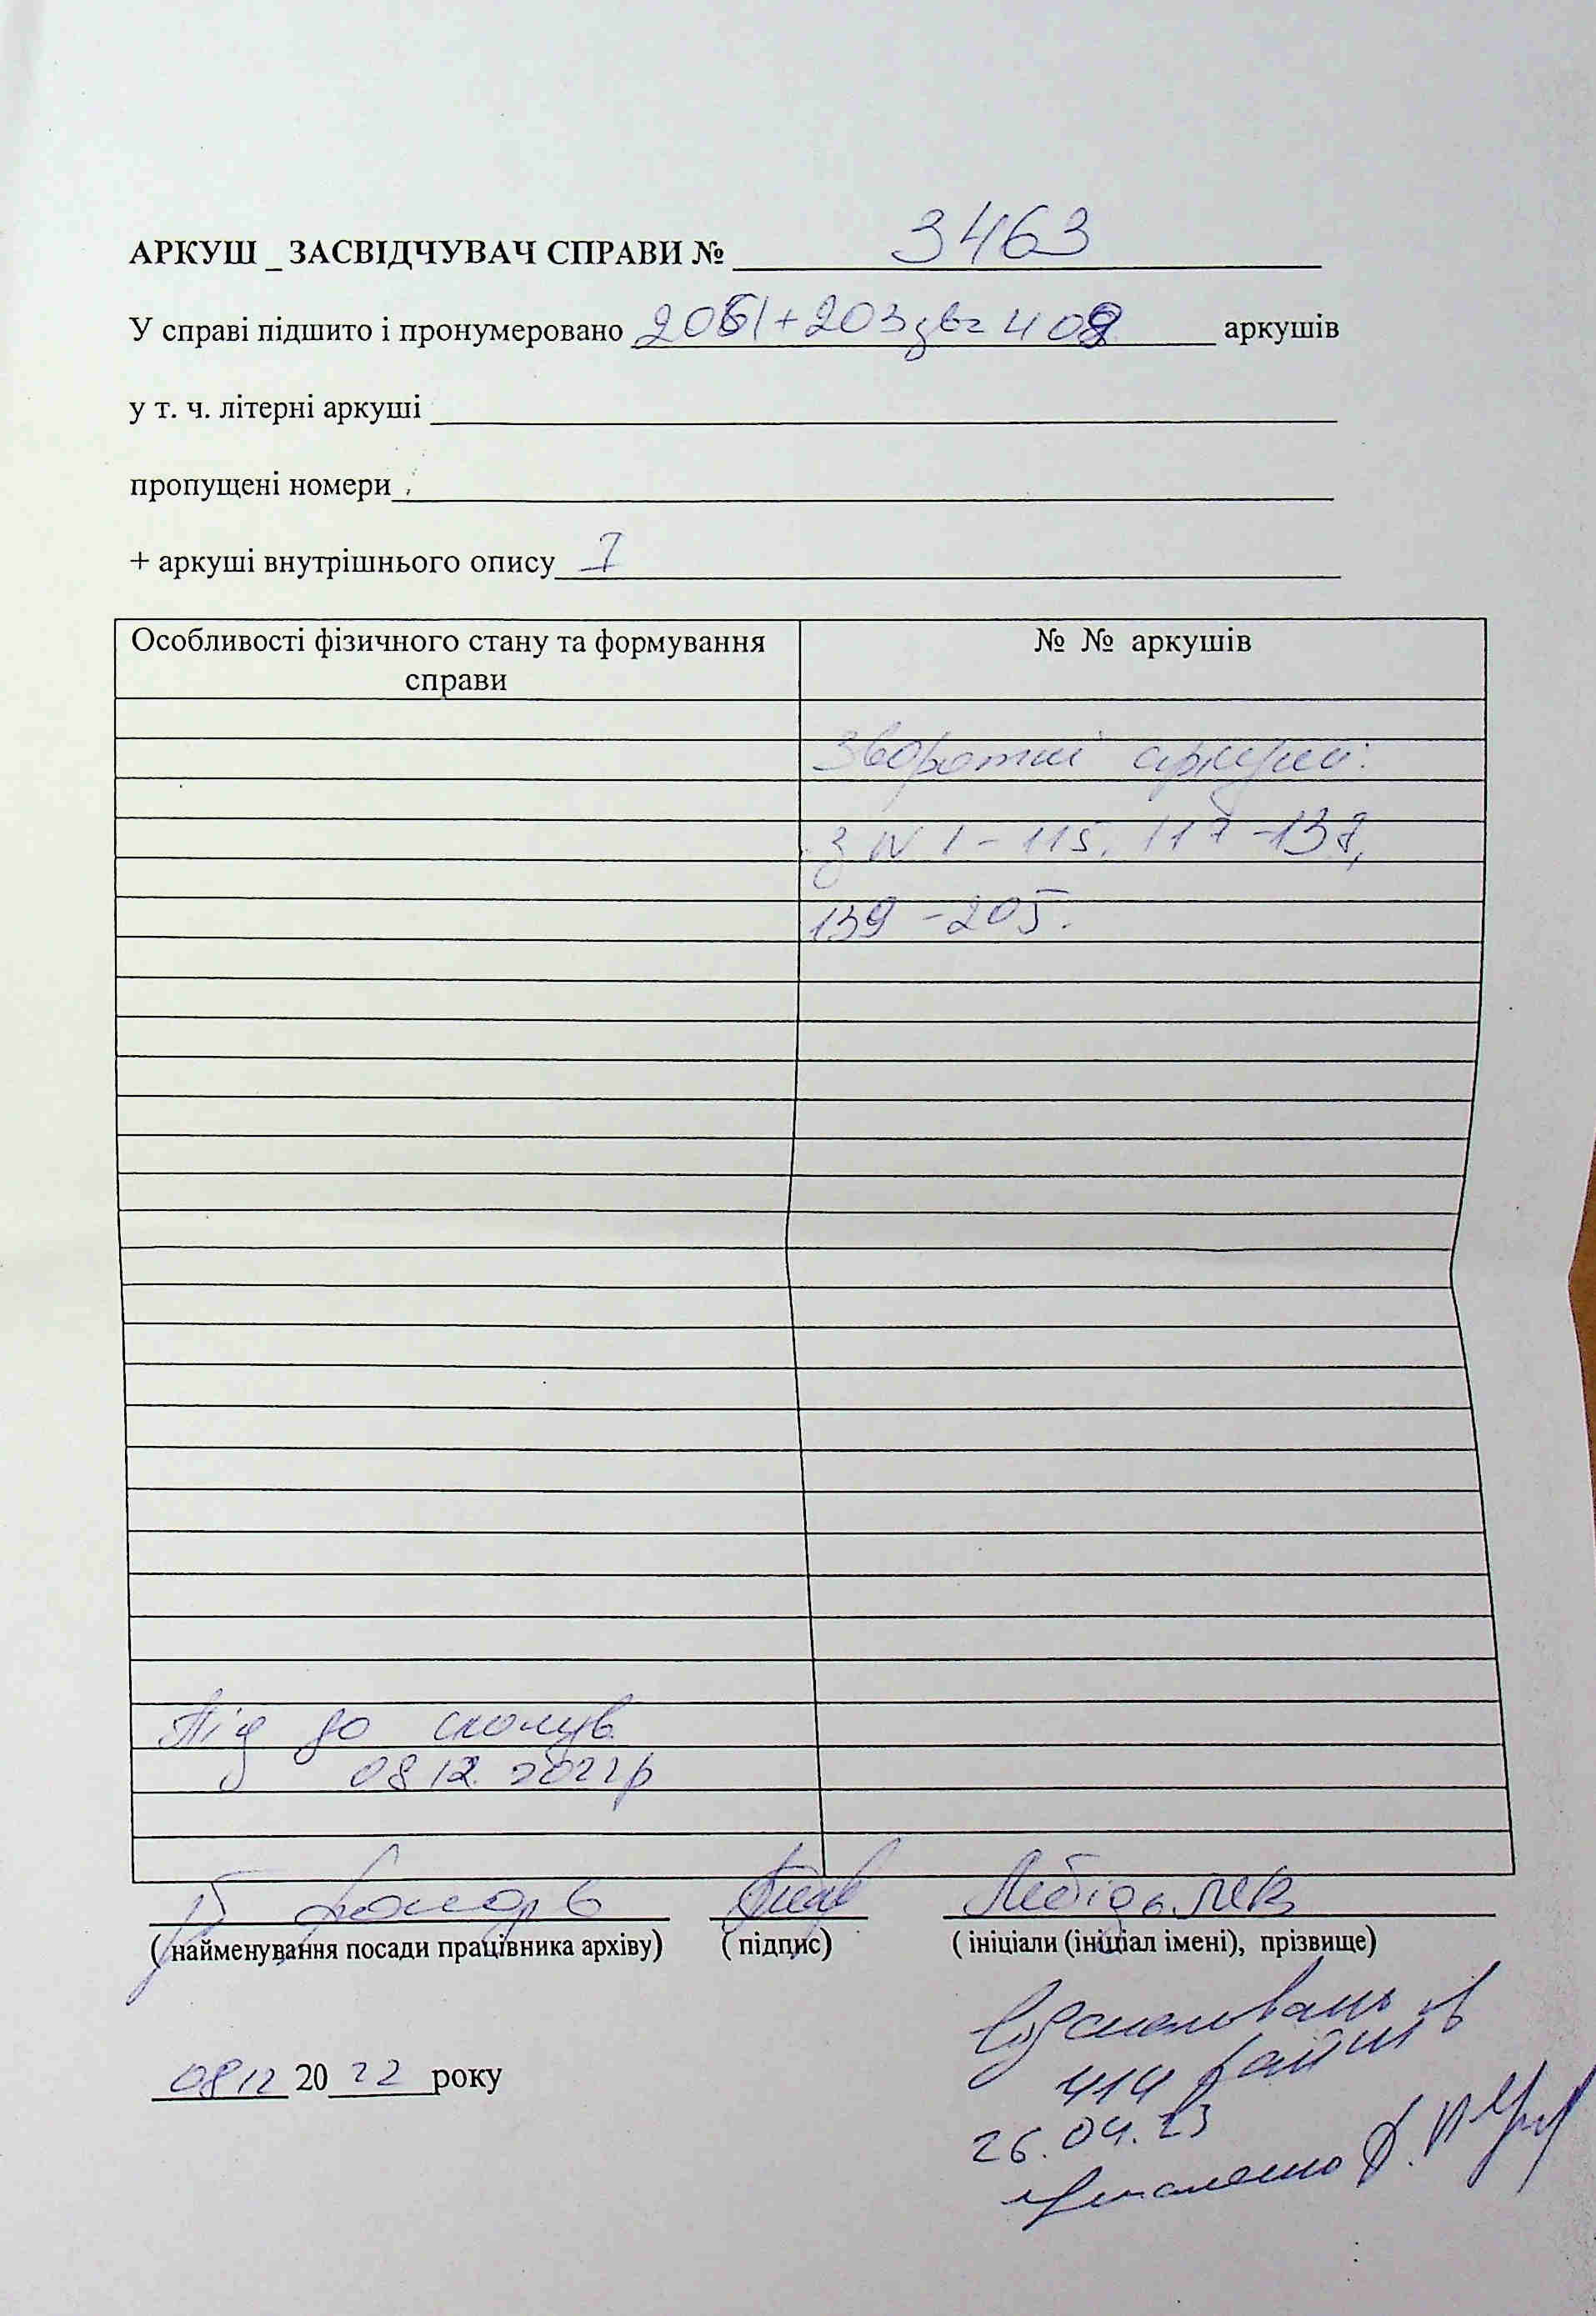 АРКУШ _ ЗАСВІДЧУВАЧ СПРАВИ № 3463
У справі підшито і пронумеровано +203зв= 409 аркушів
у т. ч. літерні аркуші
пропущені номери
+ аркуші внутрішнього опису 1
Особливості фізичного стану та формування справи
№ № аркушів
Зворотні аркуші:
з N 1 - 115, 117 - 137,
139 - 205.
Під до сканув.
08 12. 2022р
Лебідь
( найменування посади працівника архіву) ( підпис) ( ініціали (ініціал імені), прізвище)
08 12 20 22 року
Відскановано в
414 файлів
26.04.23